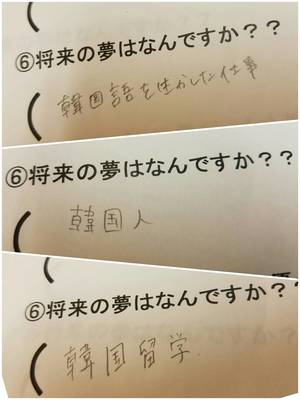 ⑥将来の夢はなんですか??
(韓国語を生かした仕事
⑥将来の夢はなんですか??
(韓国人
⑥将来の夢はなんですか??
(韓国留学.